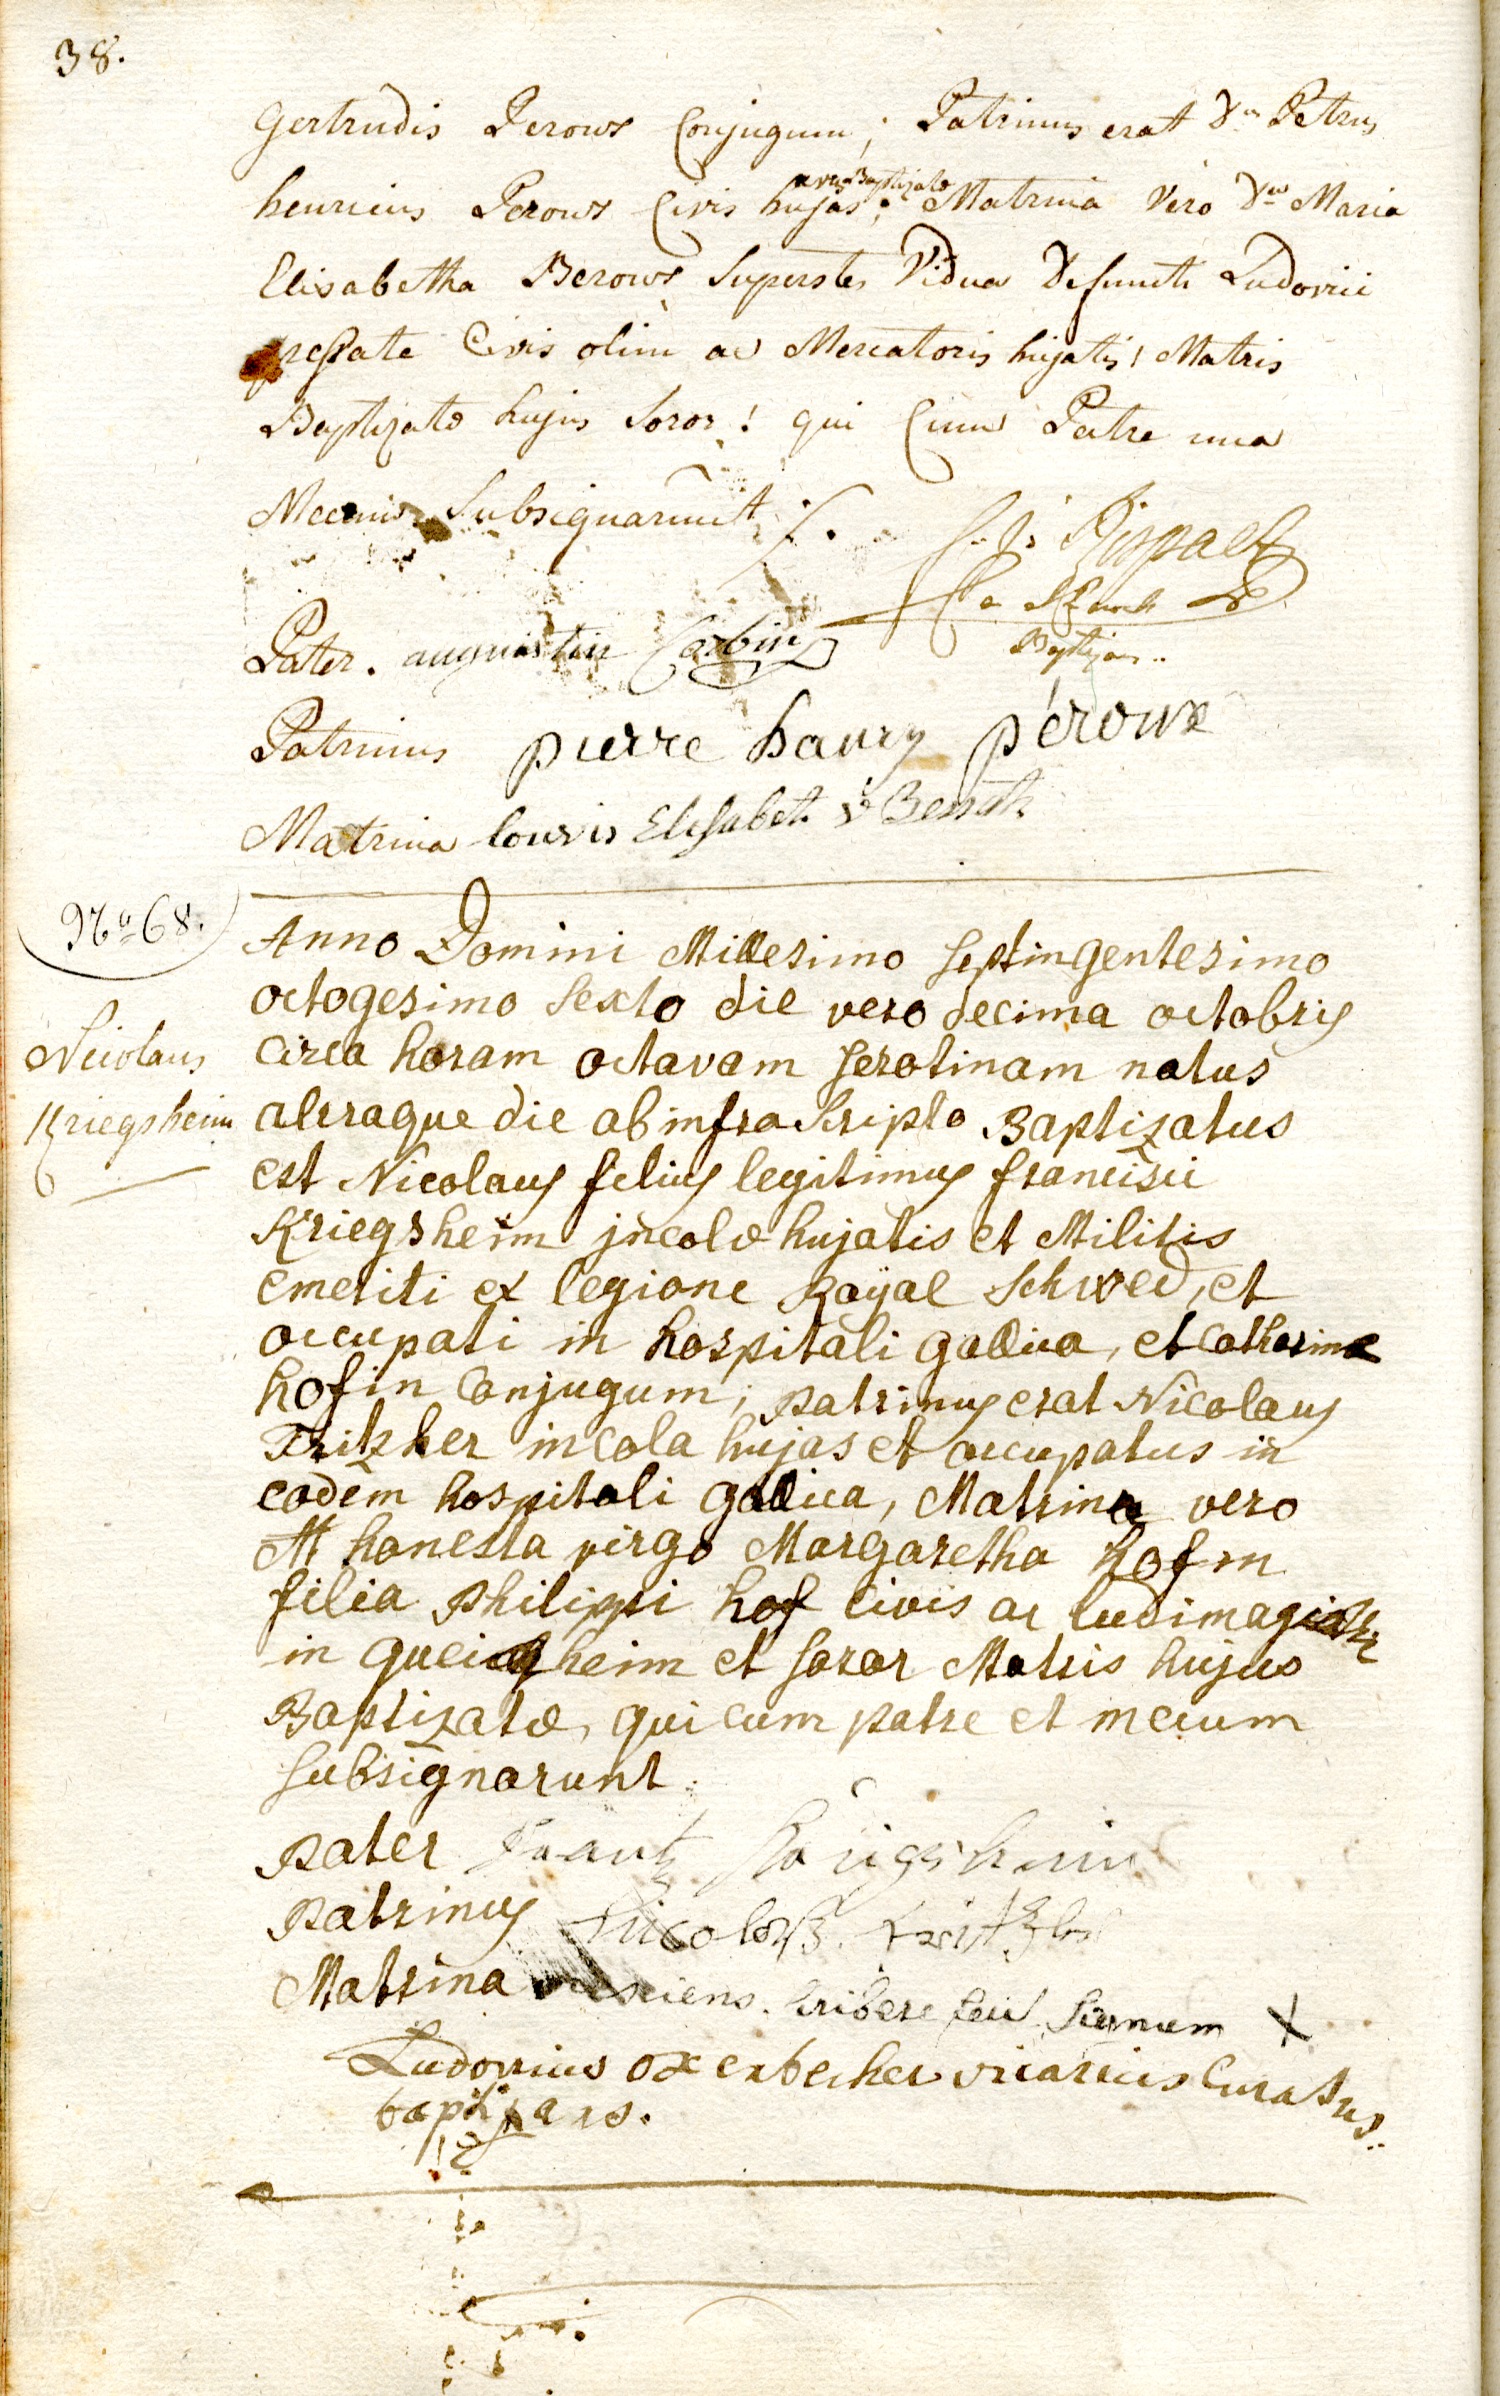 38.
Gertrudis Perows Conjugum; Patrinus erat Dns Petrus
avus Baptizatæ
henricus Perows Civis hujas; Matrina Vero Dna Maria
Elisabetha Berows Superstes Vidua Defuncti Ludovici
Civis olim ac Mercatoris hujatis! Matris
Baptizatæ hujus Soror! qui Cum Patre una
Mecum Subsignarunt
Baptizans..
Pater. augustin Corbin
Patrinus pierre hanry péroux
Matrina louvis Elisabet
No 68.
Nicolaus
Kriegsheim
Anno Domini Millesimo septingentesimo
octogesimo sexto die vero decima octobris
circa horam octavam serotinam natus
alteraque die ab infra scripto Baptizatus
est Nicolaus filius legitimus francisci
Kriegsheim jncolæ hujatis et Militis
emeriti ex legione Royal Schwed, et
occupati in hospitali gallica, et Catharinæ
hofin Conjugum; patrinus erat Nicolaus
Tritzher incola hujas et occupatus in
eodem hospitali gallica, Matrina vero
honesta virgo Margaretha hofin
filia philippi hof civis ac ludimagistri
in heim et soror Matris hujus
Baptizatæ, qui cum patre et mecum
subsignarunt.
pater Frantz
patrinus
Matrina nesciens scribere fecit signum X
Ludovicus oxenbecher vicarius Curatus..
baptizans.